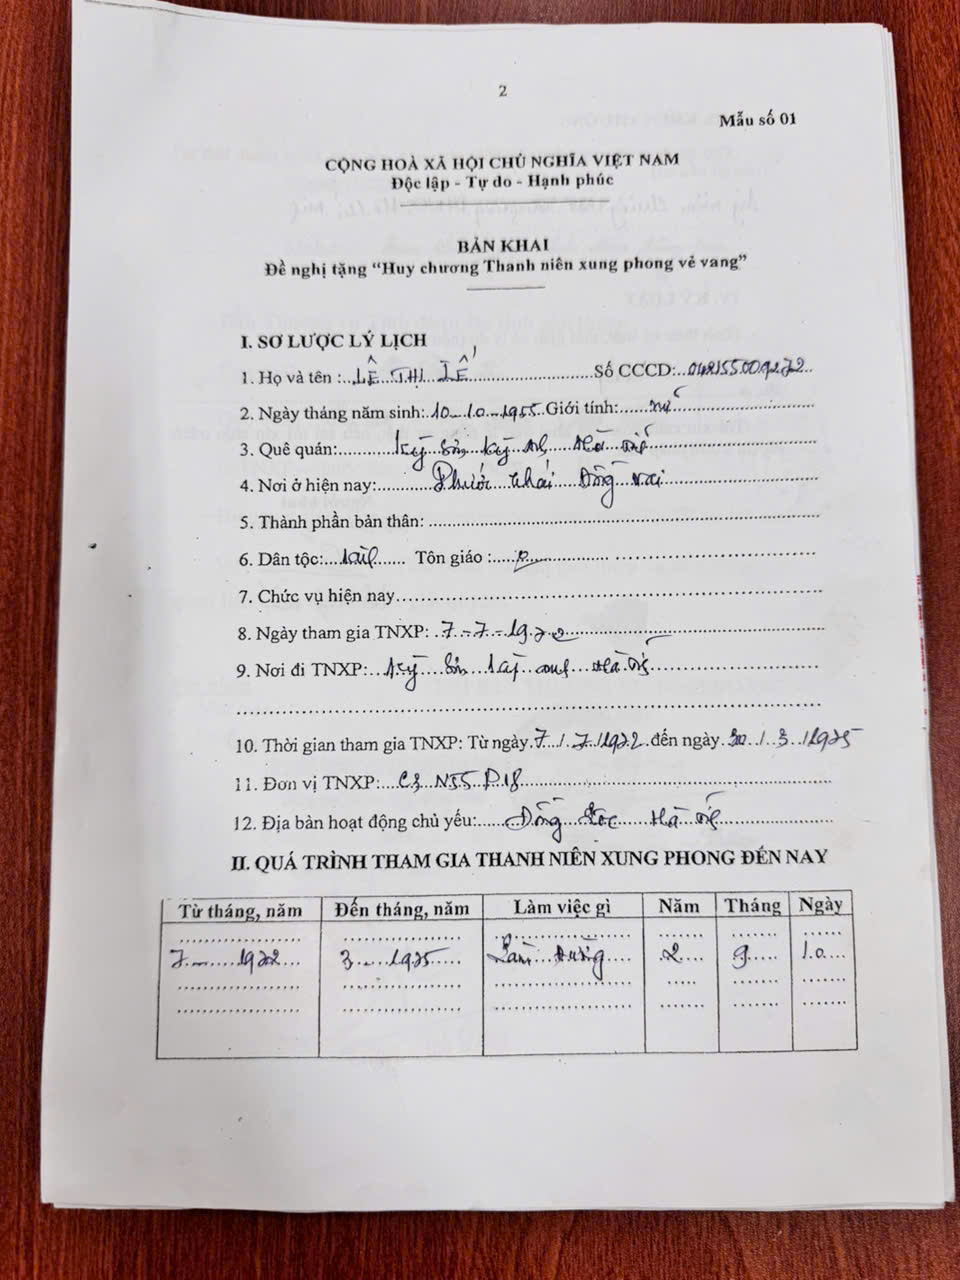 2
Mẫu số 01
CỘNG HOÀ XÃ HỘI CHỦ NGHĨA VIỆT NAM
Độc lập - Tự do - Hạnh phúc
BẢN KHAI
Đề nghị tặng “Huy chương Thanh niên xung phong vẻ vang”
I. SƠ LƯỢC LÝ LỊCH
1. Họ và tên : LÊ THỊ Số CCCD:
2. Ngày tháng năm sinh: 10-10-1955 Giới tính: nữ
3. Quê quán: Kỳ Sơn Kỳ Anh Hà Tĩnh
4. Nơi ở hiện nay: Phước Thái Đồng Nai
5. Thành phần bản thân:
6. Dân tộc: Kinh Tôn giáo :
7. Chức vụ hiện nay
8. Ngày tham gia TNXP: 7-7-1972
9. Nơi đi TNXP: Kỳ Sơn Kỳ Anh Hà Tĩnh
10. Thời gian tham gia TNXP: Từ ngày 7/7/1972 đến ngày 30/3/1975
11. Đơn vị TNXP: C3 N55 P18
12. Địa bàn hoạt động chủ yếu: Đồng Lộc Hà Tĩnh
II. QUÁ TRÌNH THAM GIA THANH NIÊN XUNG PHONG ĐẾN NAY
Từ tháng, năm Đến tháng, năm Làm việc gì Năm Tháng Ngày
7 - 1972 3 - 1975 Làm đường 2 9 10